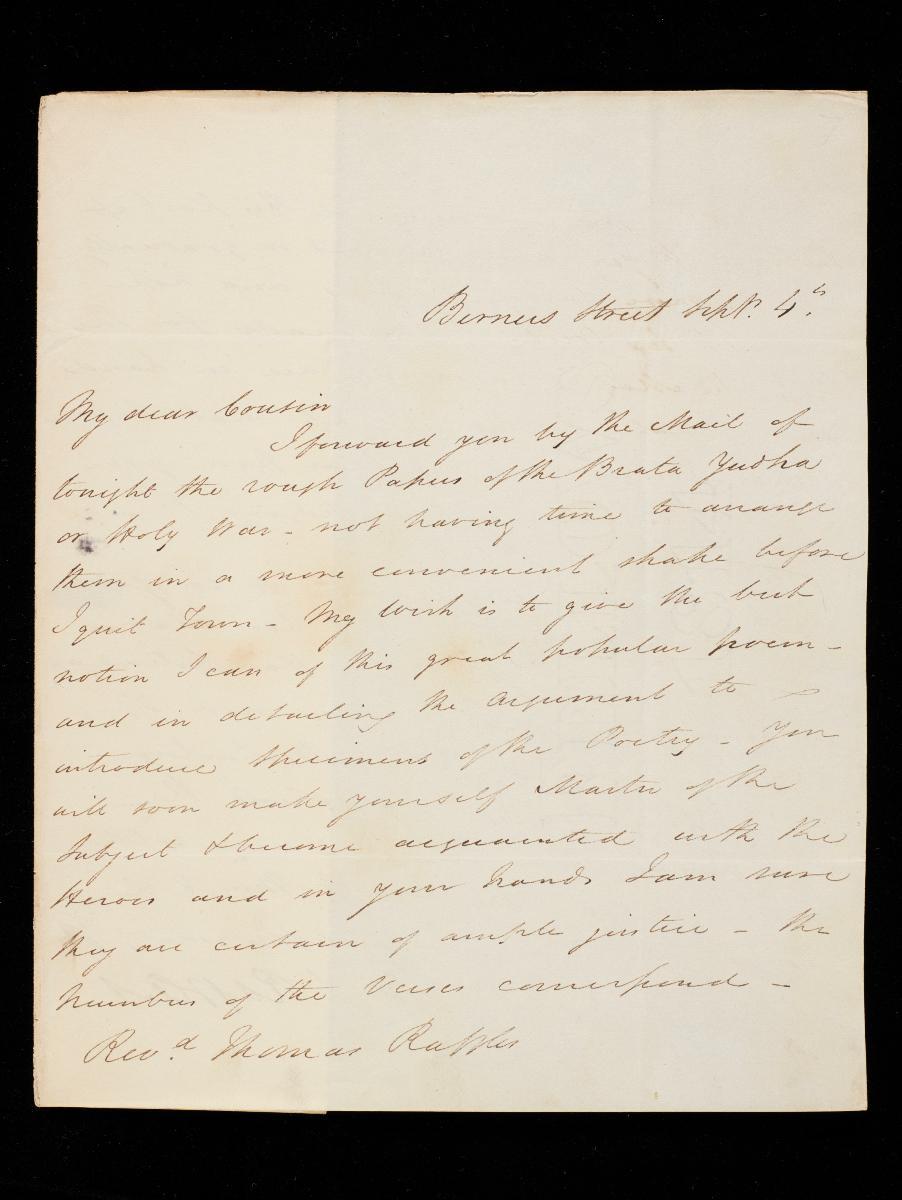 Berners Street Sept. 4th
My dear Cousin
I forward you by the Mail of
tonight the rough Papers of the Brata Yudha
or Holy War - not having time to arrange
them in a more convenient shape before
I quit Town - My Wish is to give the best
notion I can of this great popular poem -
and in detailing the Argument to
introduce Specimens of the Poetry - You
will soon make yourself Master of the
Subject & become acquainted with the
Heroes and in your hands I am sure
they are certain of ample justice - the
Numbers of the Verses correspond -
Revd. Thomas Raffles